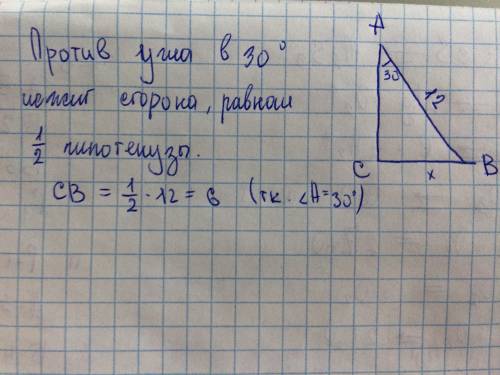 Против угла в 30°
лежит сторона, равная
1/2 гипотенузы.
CB = 1/2 · 12 = 6 (тк. ∠A=30°)
A
30
12
C
x
B